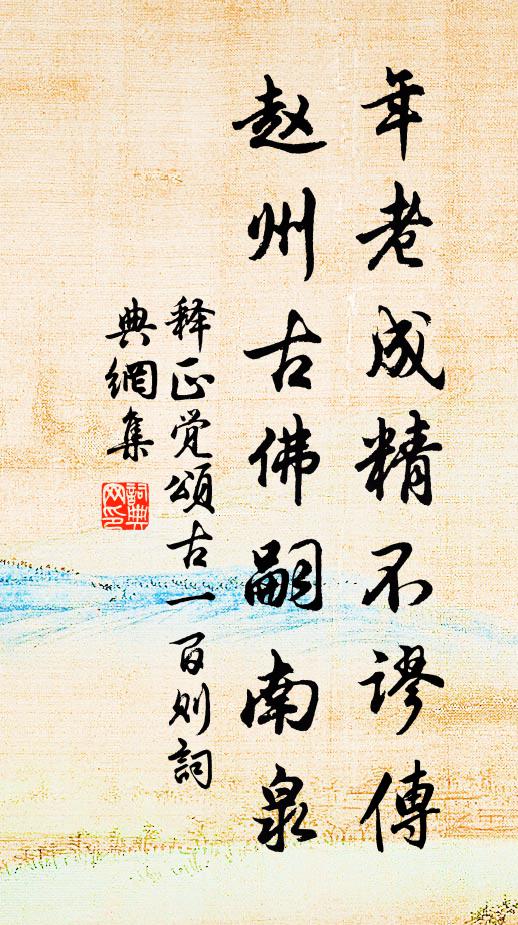 年老成精不谬傳
赵州古佛嗣南泉
释正觉頌古一百则詞
典網集
詞典网印